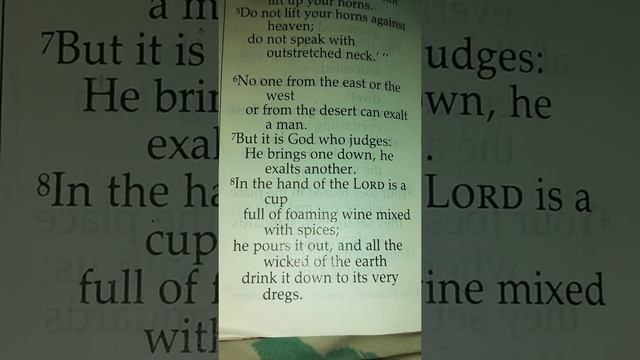 lift up your horns.
⁵Do not lift your horns against
heaven;
do not speak with
outstretched neck.’ ”
⁶No one from the east or the
west
or from the desert can exalt
a man.
⁷But it is God who judges:
He brings one down, he
exalts another.
⁸In the hand of the LORD is a
cup
full of foaming wine mixed
with spices;
he pours it out, and all the
wicked of the earth
drink it down to its very
dregs.